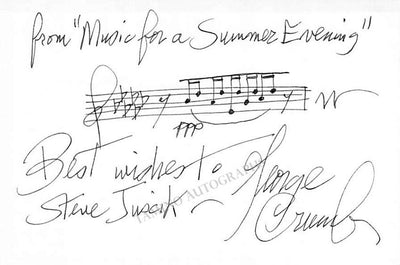 from "Music for a Summer Evening"
ppp
Best wishes to
Steve
George
Crumb
TAMINO AUTOGRAPHS